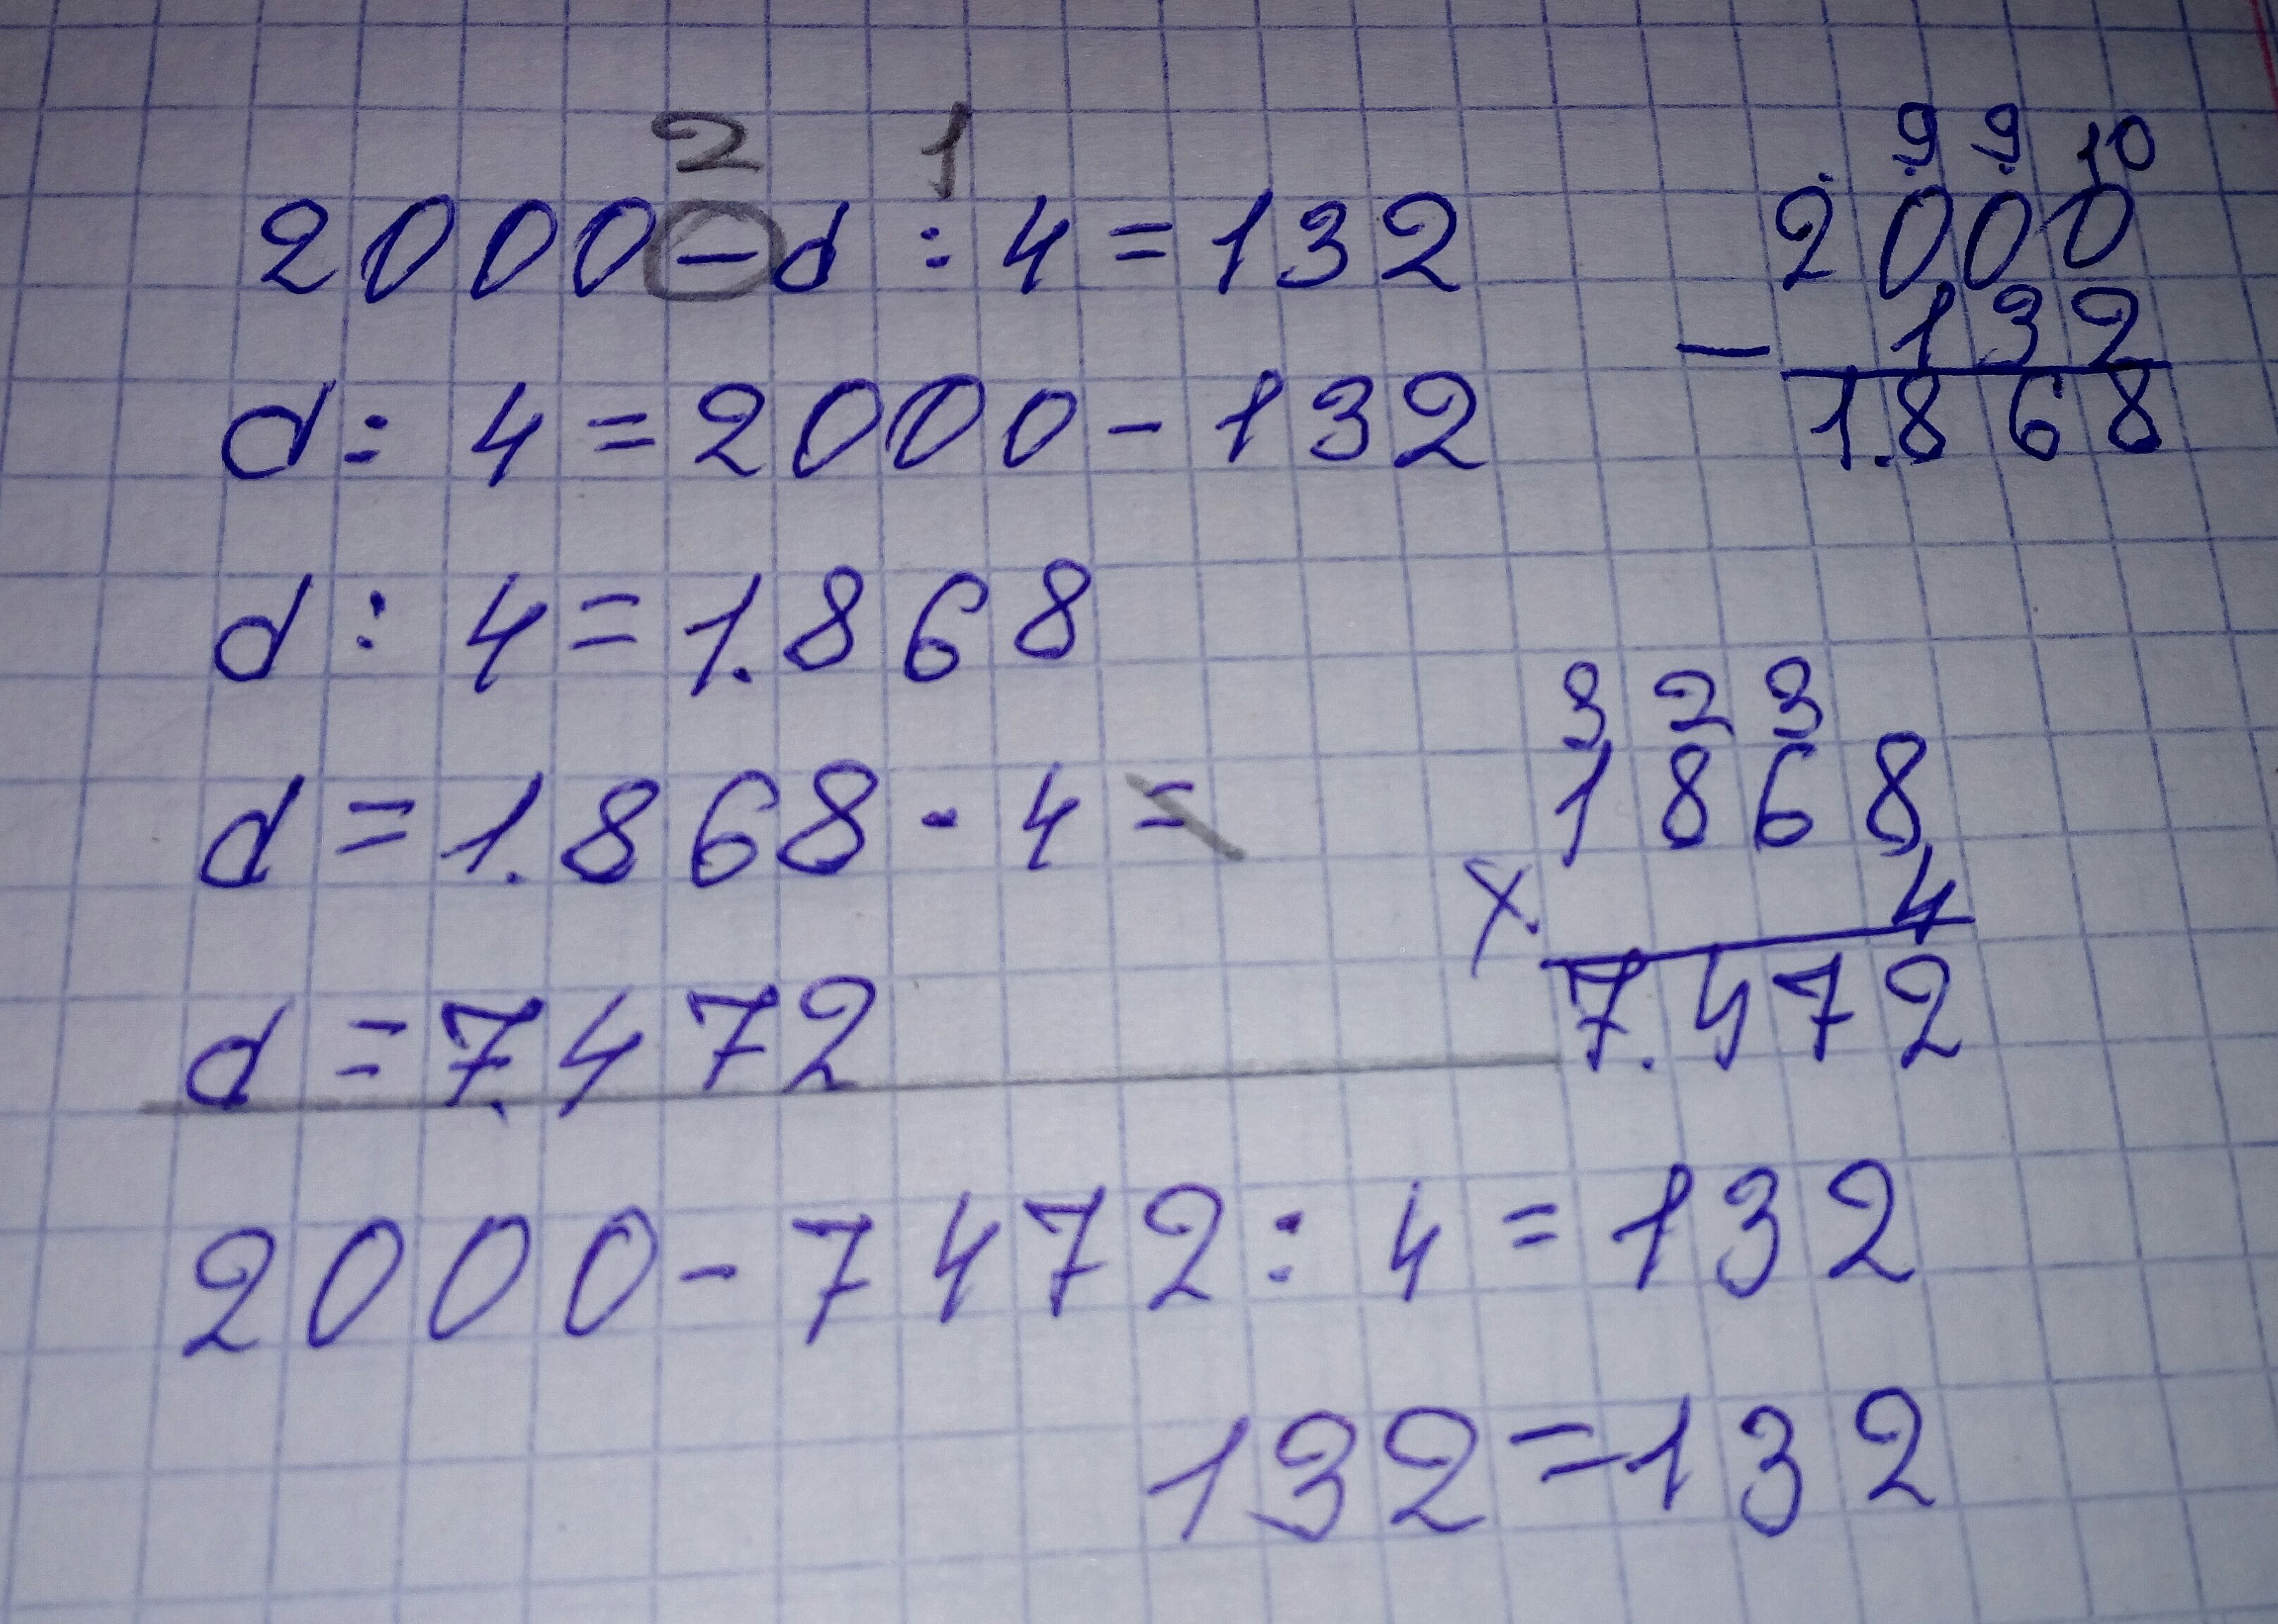 2 1
2000-d:4=132
d:4=2000-132
d:4=1.868
d=1.868·4=
d=7.472
2000-7472:4=132
132=132
9 9 10
2000
- 132
1.868
3 2 3
1868
x 4
7.472